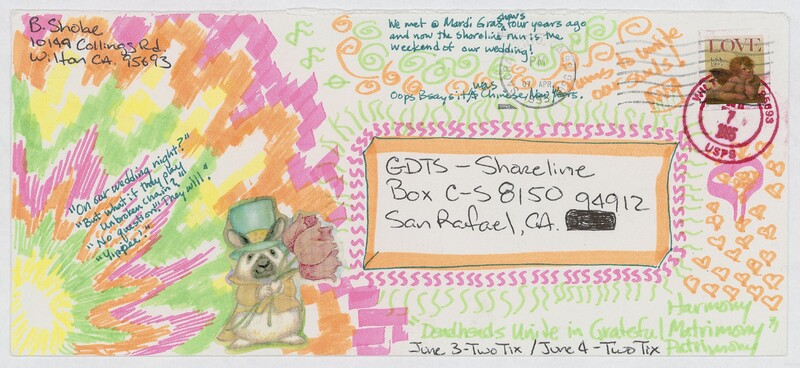 B. Shobe
10149 Collings Rd.
Wilton CA. 95693
We met @ Mardi Gras shows four years ago
and now the Shoreline run is the
weekend of our wedding!
Oops B says it was Chinese New Years.
to unite
our souls!
LOVE
USPS
"On our wedding night?"
"But what if they play
Unbroken Chain?"
"No question! They will!"
"Yippee!"
GDTS - Shoreline
Box C-S 8150 94912
San Rafael, CA.
Harmony
"Deadheads Unite in Grateful Matrimony"
Patrimony
June 3 - Two Tix / June 4 - Two Tix